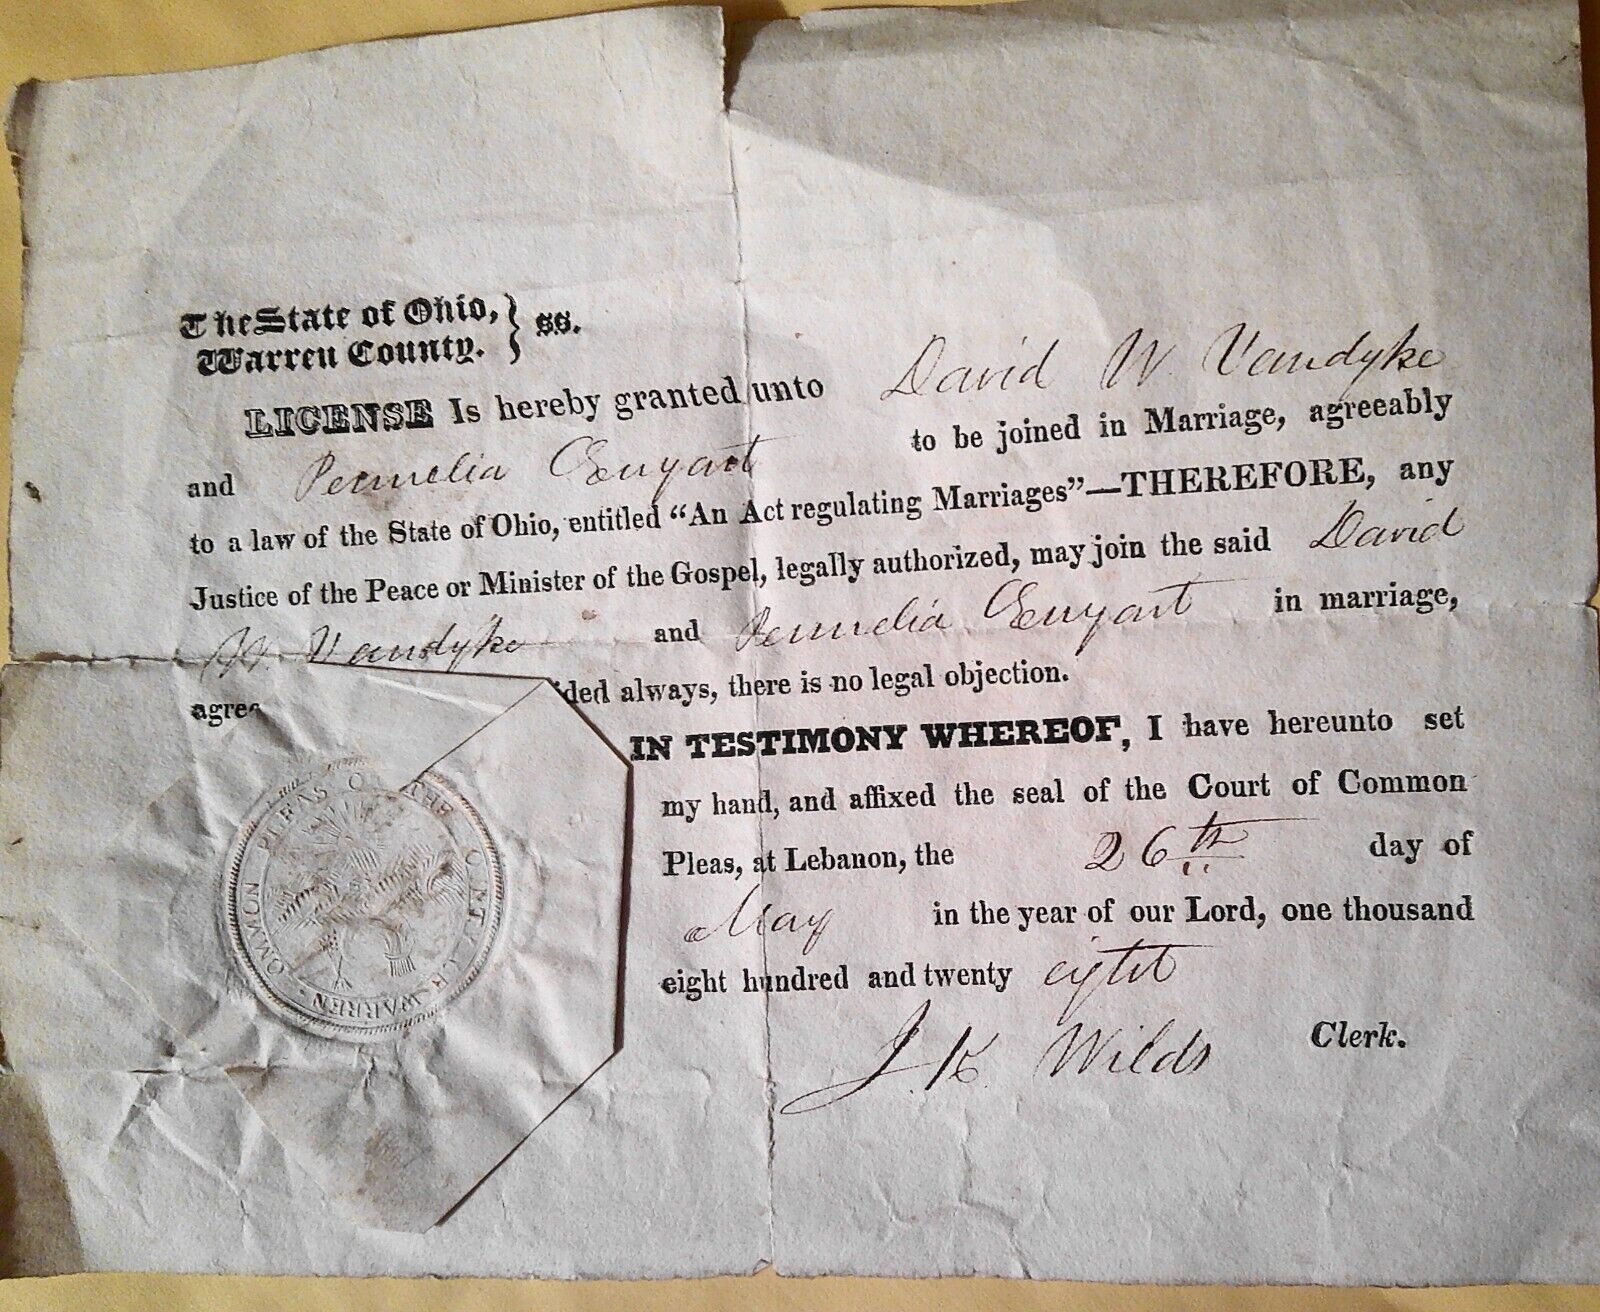 The State of Ohio,
Warren County. } ss.
LICENSE Is hereby granted unto David W. Vandyke
and Permelia Enyart to be joined in Marriage, agreeably
to a law of the State of Ohio, entitled “An Act regulating Marriages”—THEREFORE, any
Justice of the Peace or Minister of the Gospel, legally authorized, may join the said David
W. Vandyke and Permelia Enyart in marriage,
agree ided always, there is no legal objection.
IN TESTIMONY WHEREOF, I have hereunto set
my hand, and affixed the seal of the Court of Common
Pleas, at Lebanon, the 26th day of
May in the year of our Lord, one thousand
eight hundred and twenty eight
J. K. Wilds Clerk.
COMMON PLEAS OF THE WARREN